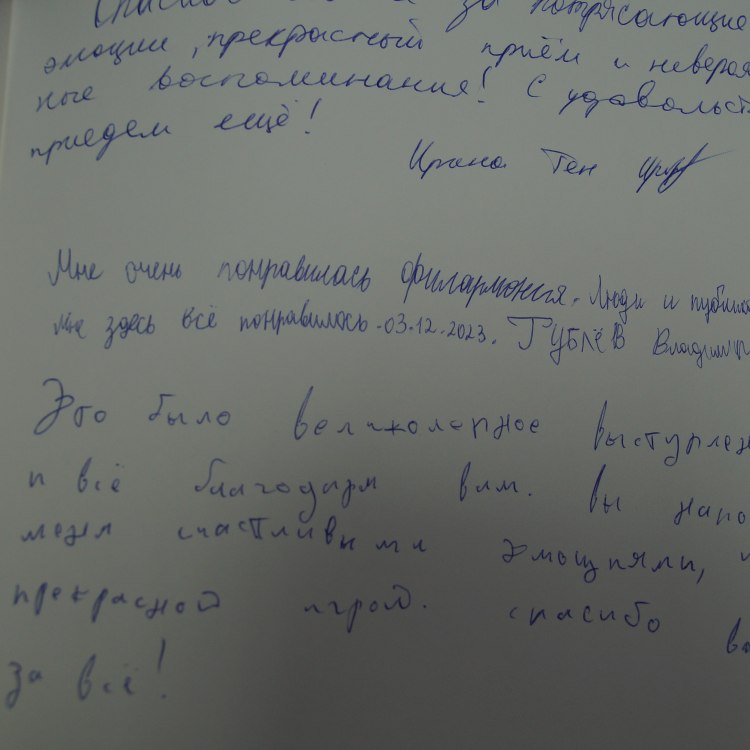 за потрясающие
эмоции, прекрасный приём и невероя
ные воспоминания! С удовольст
приедем ещё!
Ирина Тен
Мне очень понравилась филармония. Люди и публика
Мне здесь всё понравилось. 03.12.2023. ГУБЛЁВ Владимир
Это было великолепное выступлен
и всё благодаря вам. Вы напо
меня счастливыми эмоциями,
прекрасной игрой. спасибо ва
за всё!